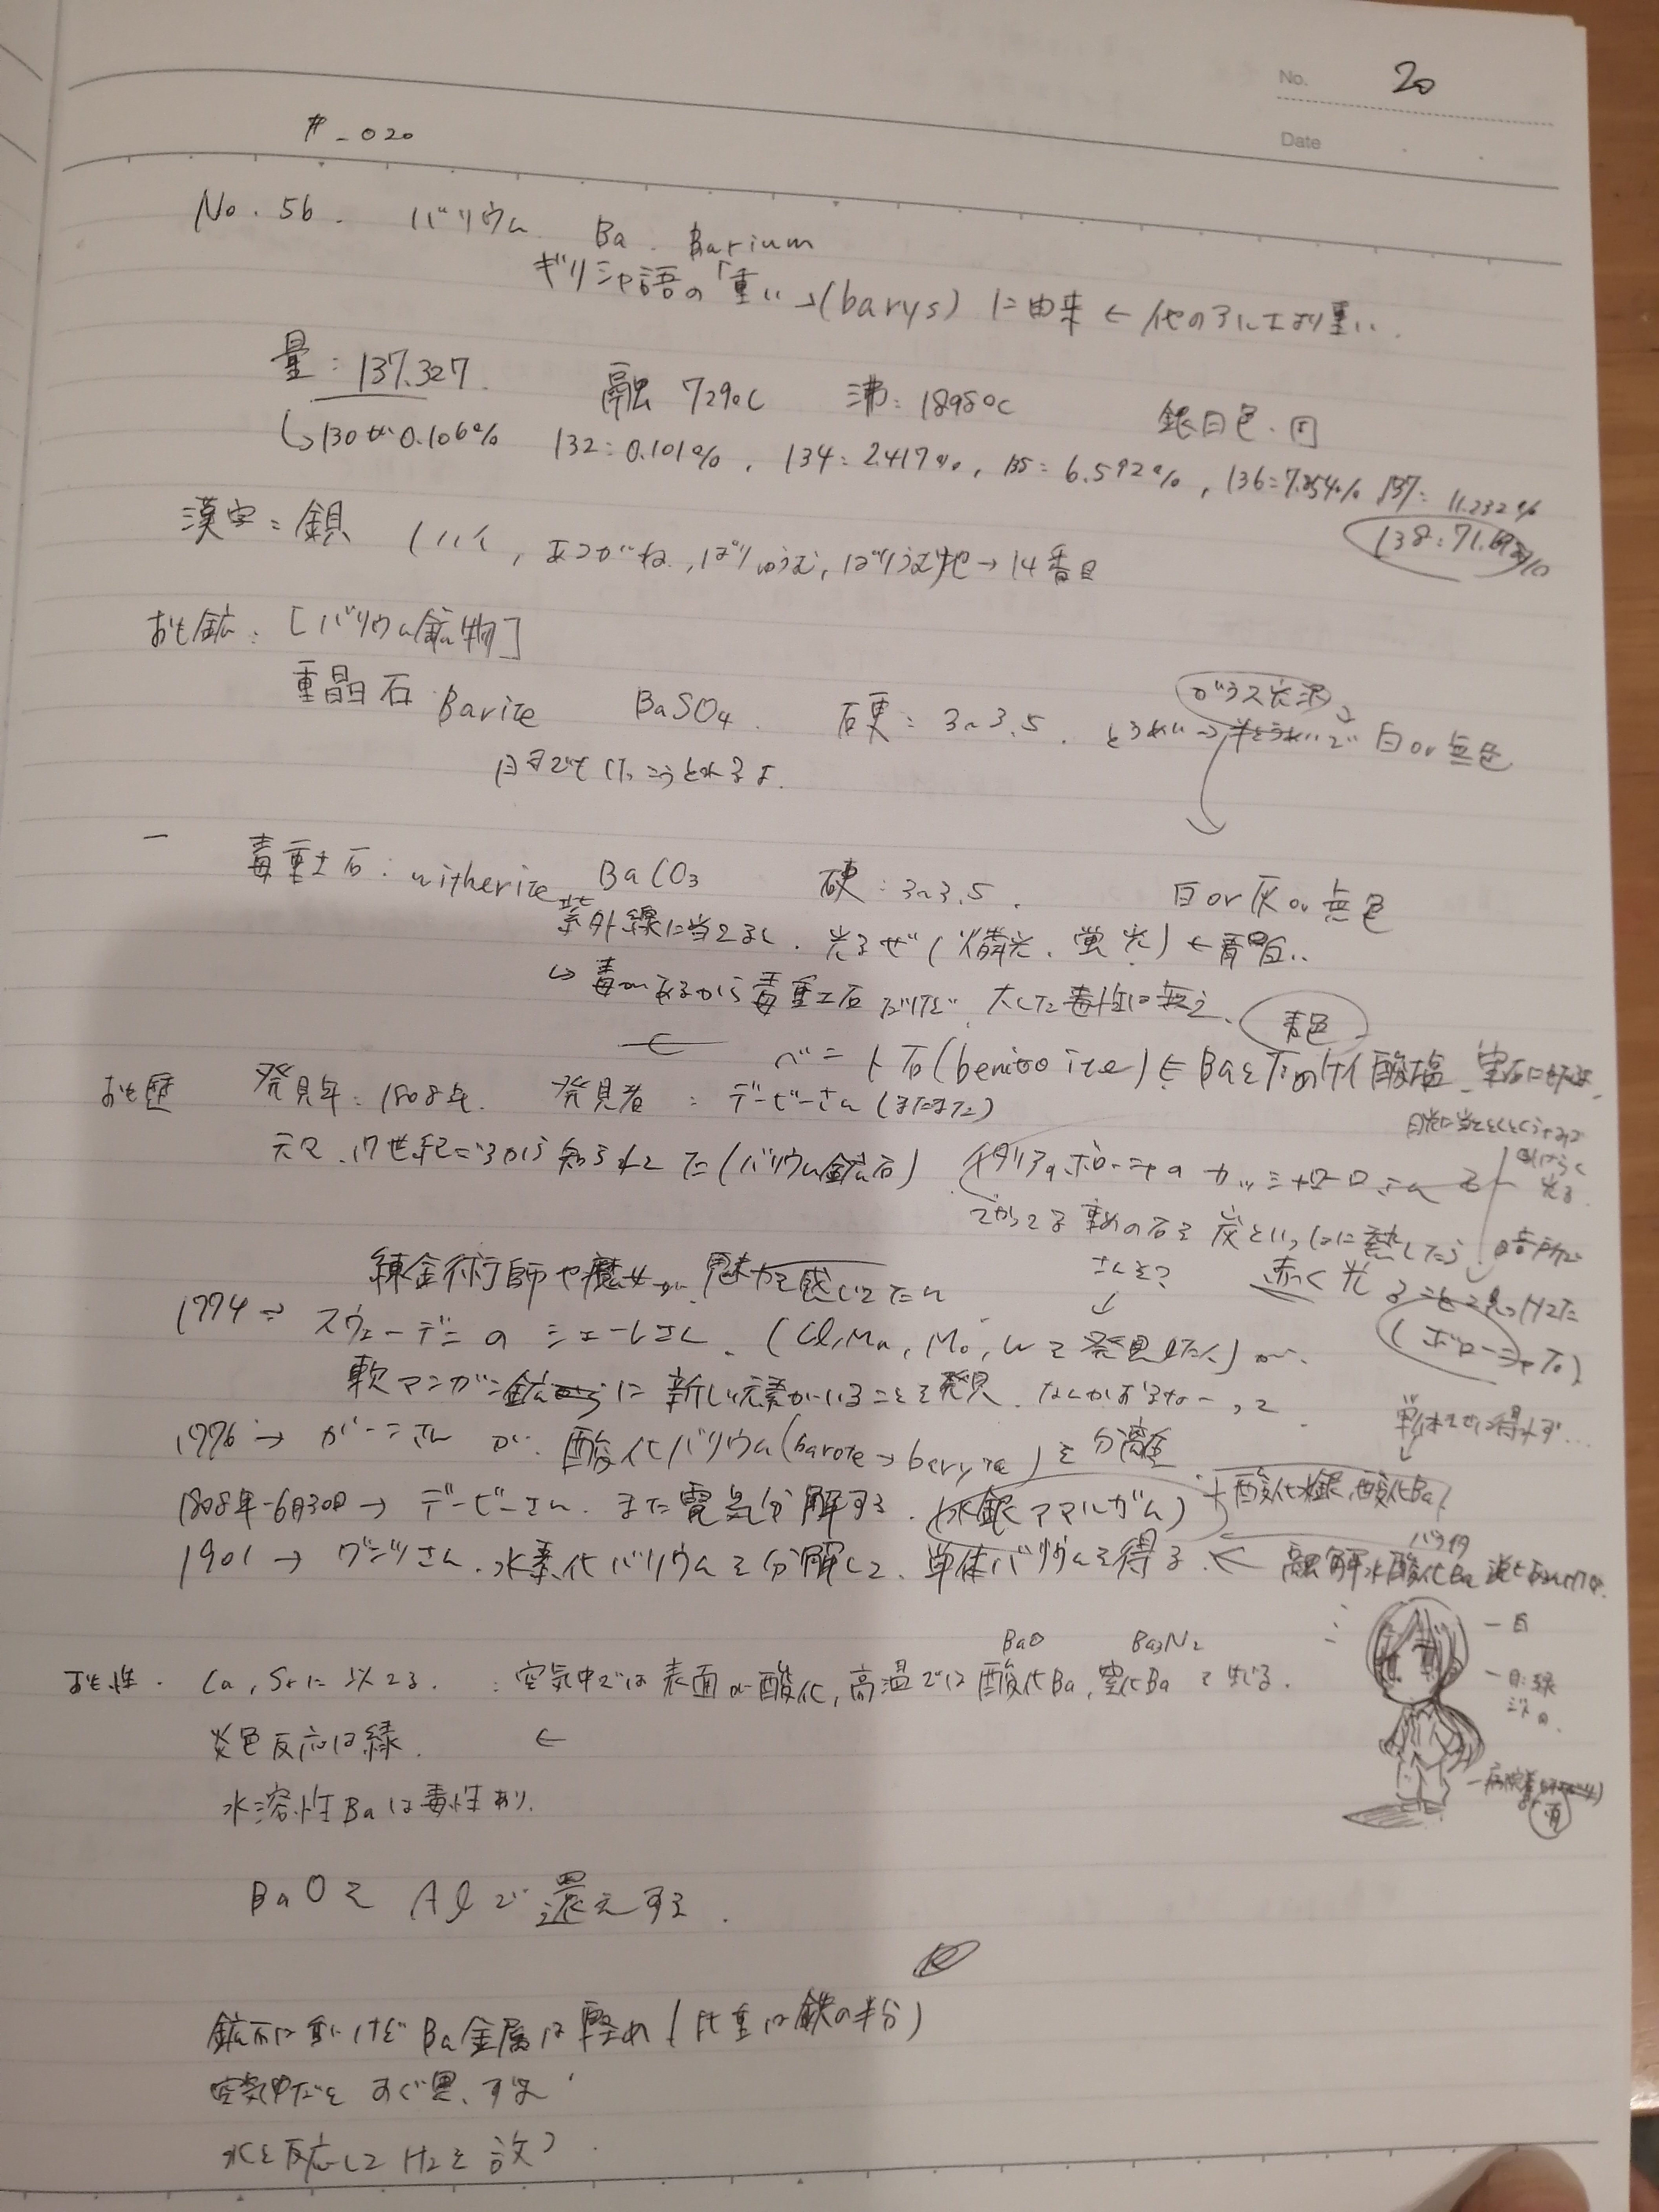 No. 20
Date
#-020
No. 56. バリウム Ba. Barium
ギリシャ語の「重い」(barys) に由来 ← 他の より重い.
量: 137.327. 融 729℃ 沸: 1898℃ 銀白色. 固
↳130が0.106% 132:0.101%, 134:2.417%, 135:6.592%, 136:7.854% 137:11.232%
138:71.698%
漢字: 鋇 (ハイ, ばりゅうむ, ばりうむ 他→14番目
おも鉱: [バリウム鉱物]
ガラス光沢
重晶石 Barite BaSO4. 硬: 3~3.5. とうめい→半とうめいで 白or無色
日本でもけっこうとれるよ.
毒重土石: witherite BaCO3 硬: 3~3.5. 白or灰or無色
紫外線に当てると、光るぜ(燐光、蛍光) ← 青白い
↳ 毒があるから毒重土石だけど、大した毒性は無え、
青色
← ベニト石(benitoite) ← BaとTiのケイ酸塩、宝石にも
おも歴 発見年: 1808年. 発見者: デービーさん(またまた)
元々、17世紀ごろから知られてた(バリウム鉱石) イタリアのボローニャの カッシャローロさん
重めの石を炭といっしょに熱したら 暗所で
赤く光ることを見つけてた
(ボローニャ石)
練金術師や魔女が、魅力を感じてたん
さんそ?
↓
1774→ スウェーデンのシェーレさん、(Cl, Mn, Mo, Wを発見した人)が、
軟マンガン鉱に新しい元素がいることを発見. なんかあるなーって
1776→ ガーンさんが、酸化バリウム(barote→baryte)を分離
単体までは得れず…
1808年-6月30日→ デービーさん、また電気分解する.(水銀アマルガム) +酸化水銀、酸化Ba
1901→ グンツさん、水素化バリウムを分解して、単体バリウムを得る. ← 融解水酸化Ba
バライタ
BaO Ba3N2
おも性. Ca, Srに似てる. : 空気中では表面が酸化, 高温では酸化Ba, 窒化Baを生じる.
炎色反応は緑. ←
水溶性Baは毒性あり.
BaOをAlで還元する.
ー白
ー目:緑
鉱石は重いけどBa金属は軽め(比重は鉄の半分)
空気中だとすぐ黒ずむよ
水と反応してH2を放つ.